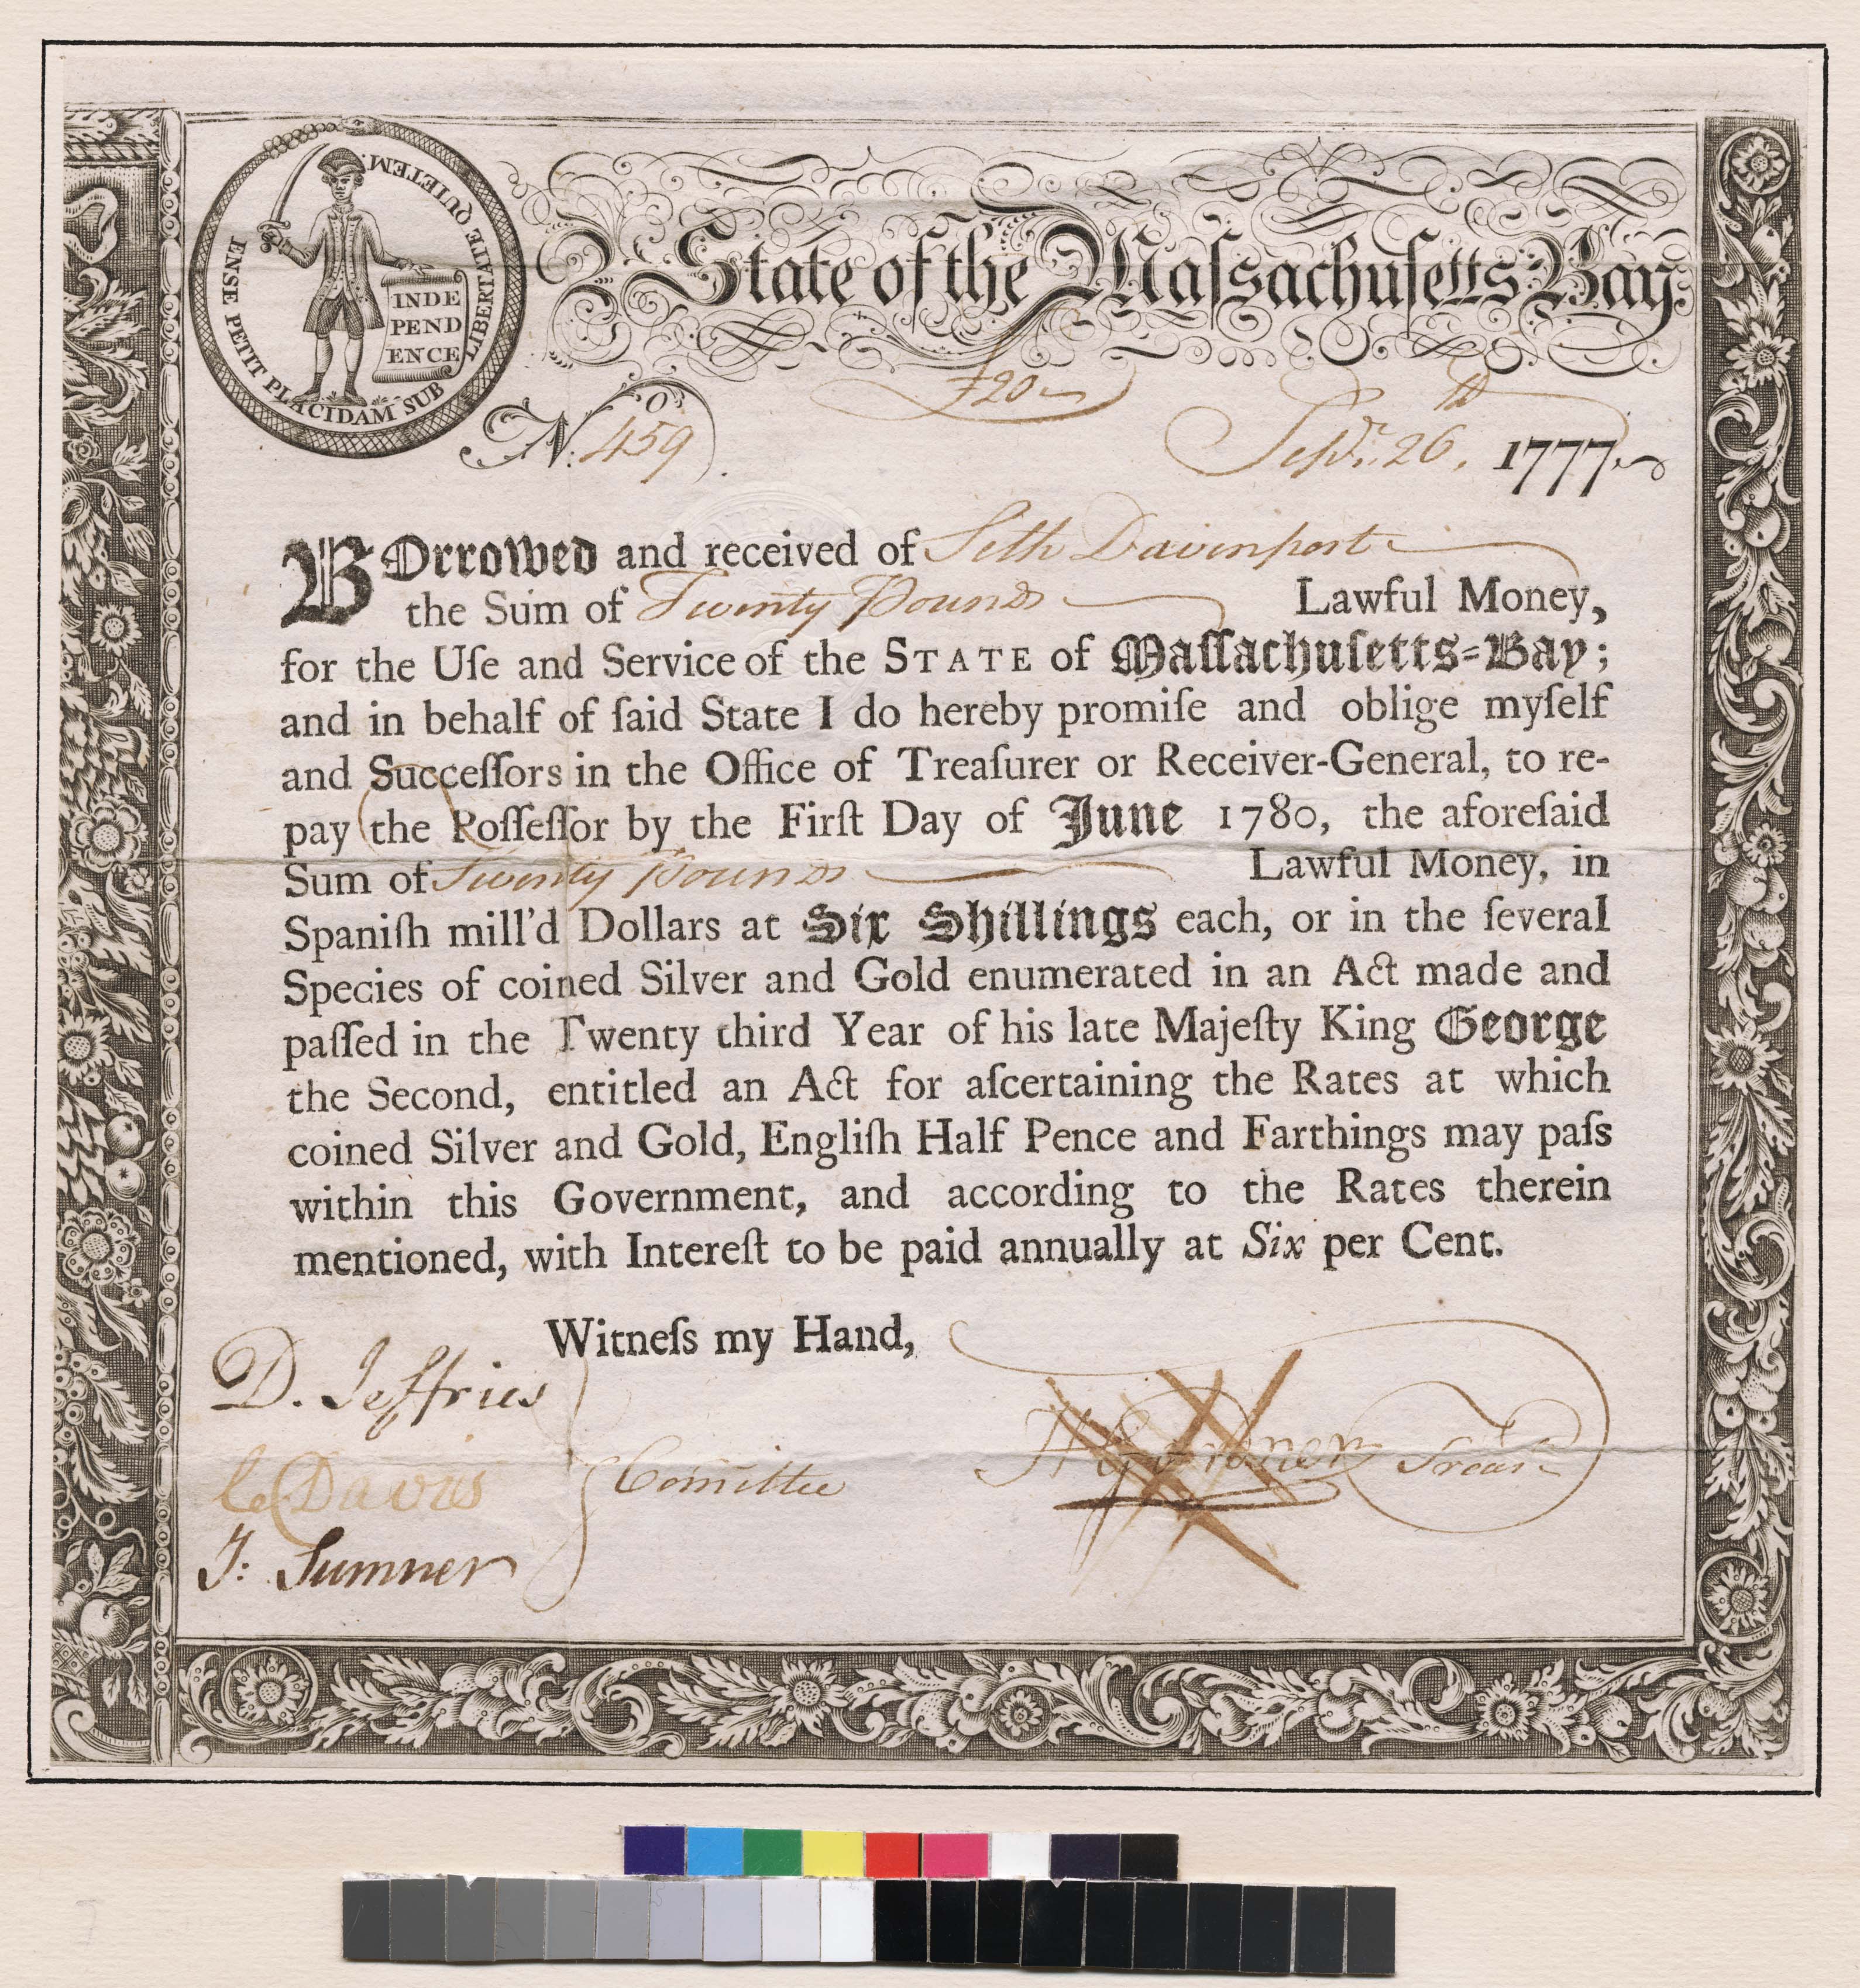 ENSE PETIT PLACIDAM SUB LIBERTATE QUIETEM.
INDE
PEND
ENCE
State of the Maſsachuſetts-Bay.
£20
No. 459
Sepr. 26th, 1777
BOrrowed and received of Seth Davenport
the Sum of Twenty Pounds Lawful Money,
for the Uſe and Service of the STATE of Maſſachuſetts-Bay;
and in behalf of ſaid State I do hereby promiſe and oblige myſelf
and Succeſſors in the Office of Treaſurer or Receiver-General, to re-
pay the Poſſeſſor by the Firſt Day of June 1780, the aforeſaid
Sum of Twenty Pounds Lawful Money, in
Spaniſh mill'd Dollars at Six Shillings each, or in the ſeveral
Species of coined Silver and Gold enumerated in an Act made and
paſſed in the Twenty third Year of his late Majeſty King George
the Second, entitled an Act for aſcertaining the Rates at which
coined Silver and Gold, Engliſh Half Pence and Farthings may paſs
within this Government, and according to the Rates therein
mentioned, with Intereſt to be paid annually at Six per Cent.
Witneſs my Hand,
D. Jeffries
Davis
Comittee
H Gardner Treasr
J: Sumner